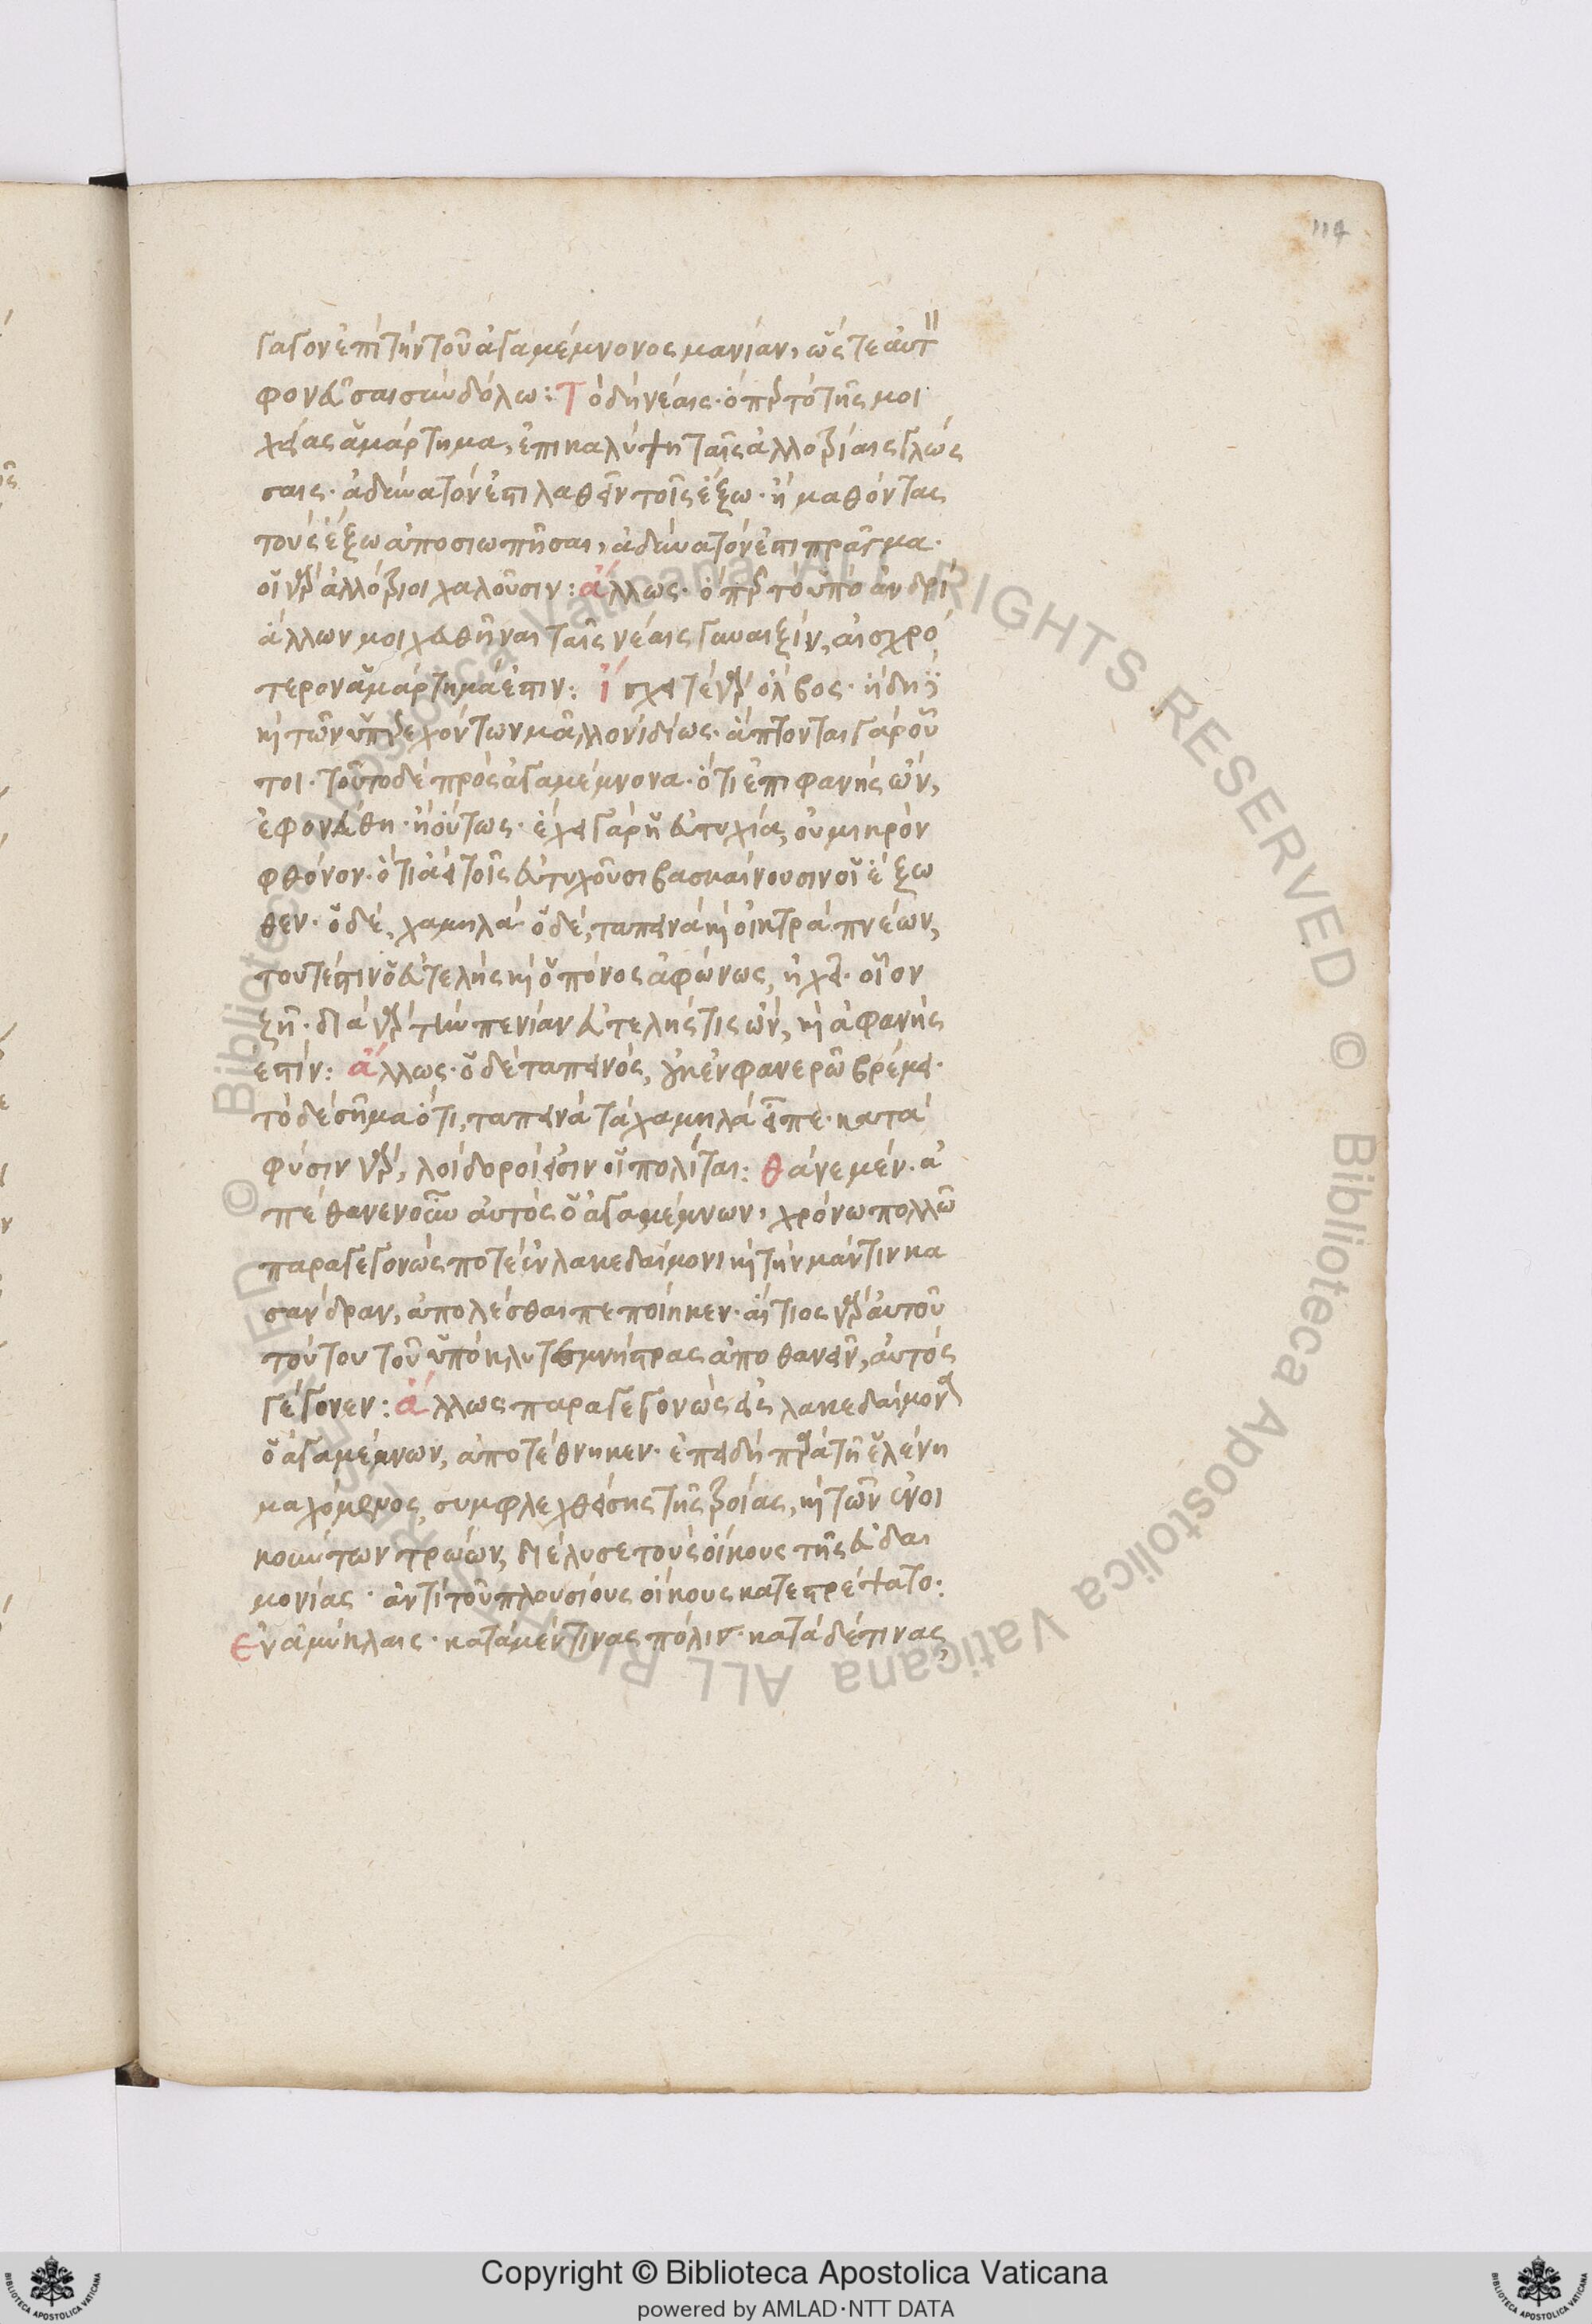 114
γαγον ἐπὶ τὴν τοῦ ἀγαμέμνονος μανίαν, ὥς τε αὐτ
φονεῦσαι σὺν δόλω: Τὸ δὴ νέαις· ὅπερ τὸ τῆς μοι
χείας ἁμάρτημα, ἐπικαλύψη ταῖς ἀλλοτρίαις γλώς
σαις· ἀδύνατόν ἐστι λαθεῖν τοῖς ἔξω· ἢ μαθόντας
τοὺς ἔξω ἀποσιωπῆσαι, ἀδύνατόν ἐστι πρᾶγμα·
οἱ γὰρ ἀλλότριοι χαλοῦσιν: ἄλλως· ὅπερ τὸ ὑπὸ ἀνδρῶ
ἄλλων μοιχευθῆναι ταῖς νέαις γυναιξίν, αἰσχρό
τερον ἁμάρτημά ἐστιν: ἴσχει τε γὰρ ὄλβος· ἤδη
καὶ τῶν ὑπερεχόντων μᾶλλον ἰδίως· ἅπτονται γὰρ οὗ
τοι· τοῦτο δὲ πρὸς ἀγαμέμνονα· ὅτι ἐπιφανὴς ὤν,
ἐφονεύθη· ἢ οὕτως· ἔχει γὰρ ἡ εὐτυχία, οὐ μικρὸν
φθόνον· ὅτι ἀεὶ τοῖς εὐτυχοῦσι βασκαίνουσιν οἱ ἔξω
θεν· ὁ δέ, χαμηλά· ὁ δέ, ταπεινὰ καὶ οἰκτρὰ πνέων,
τουτέστιν ὁ εὐτελὴς καὶ ὁ πόνος ἀφώνως, ἠχεῖ· οἷον
ζῆ· διὰ γὰρ τὴν πενίαν εὐτελής τις ὤν, καὶ ἀφανής
ἐστίν: ἄλλως· ὁ δὲ ταπεινός, ἐν φανερῶ βρέμει·
τὸ δὲ σῆμα ὅτι, ταπεινὰ τὰ χαμηλὰ εἶπε· κατὰ
φύσιν γάρ, λοίδοροί εἰσιν οἱ πολῖται: θάνε μέν· ἀ
πέθανεν οὖν αὐτὸς ὁ ἀγαμέμνων, χρόνω πολλῶ
παραγεγονώς ποτε ἐν λακεδαίμονι καὶ τὴν μάντιν κα
σάνδραν, ἀπολέσθαι πεποίηκεν· αἴτιος γὰρ αὐτοῦ
τούτου τοῦ ὑπὸ κλυταιμνήστρας ἀποθανεῖν, αὐτὸς
γέγονεν: ἄλλως παραγεγονὼς εἰς λακεδαίμονα
ὁ ἀγαμέμνων, ἀποτέθνηκεν· ἐπειδὴ παρὰ τῆ ἑλένη
μαχόμενος, συμφλεχθείσης τῆς τροίας, καὶ τῶν ἐνοι
κούντων τρώων, διέλυσε τοὺς οἴκους τῆς εὐδαι
μονίας· ἀντὶ τοῦ πλουσίους οἴκους κατεστρέψατο:
Ἐν ἀμύκλαις· κατὰ μέν τινας πόλιν· κατὰ δέ τινας,
Copyright © Biblioteca Apostolica Vaticana
powered by AMLAD·NTT DATA